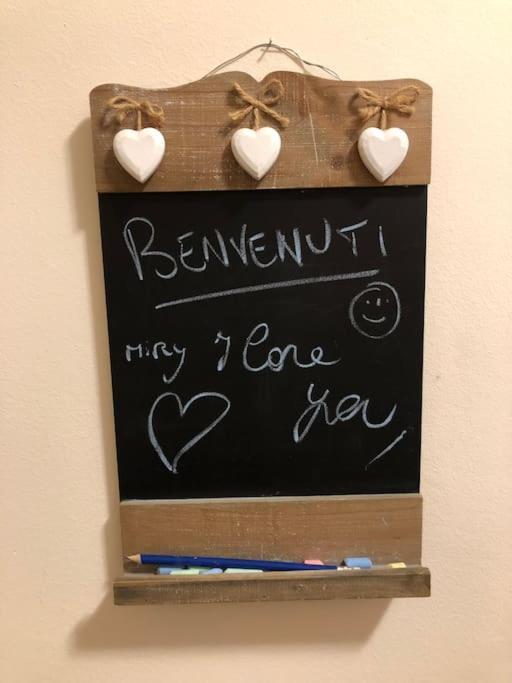 BENVENUTI
MIRY I love
you